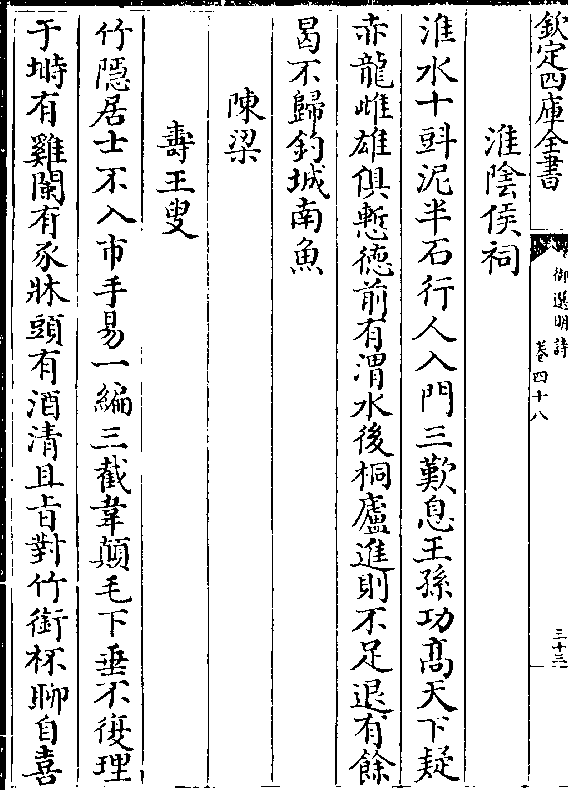 欽定四庫全書
御選明詩
卷四十八
三十三
淮陰侯祠
淮水十斞泥半石行人入門三歎息王孫功高天下疑
赤龍雌雄俱慙德前有渭水後桐廬進則不足退有餘
曷不歸釣城南魚
陳梁
壽王叟
竹隱居士不入市手易一編三截韋顛毛下垂不復理
于塒有雞闌有豕牀頭有酒清且旨對竹銜杯聊自喜